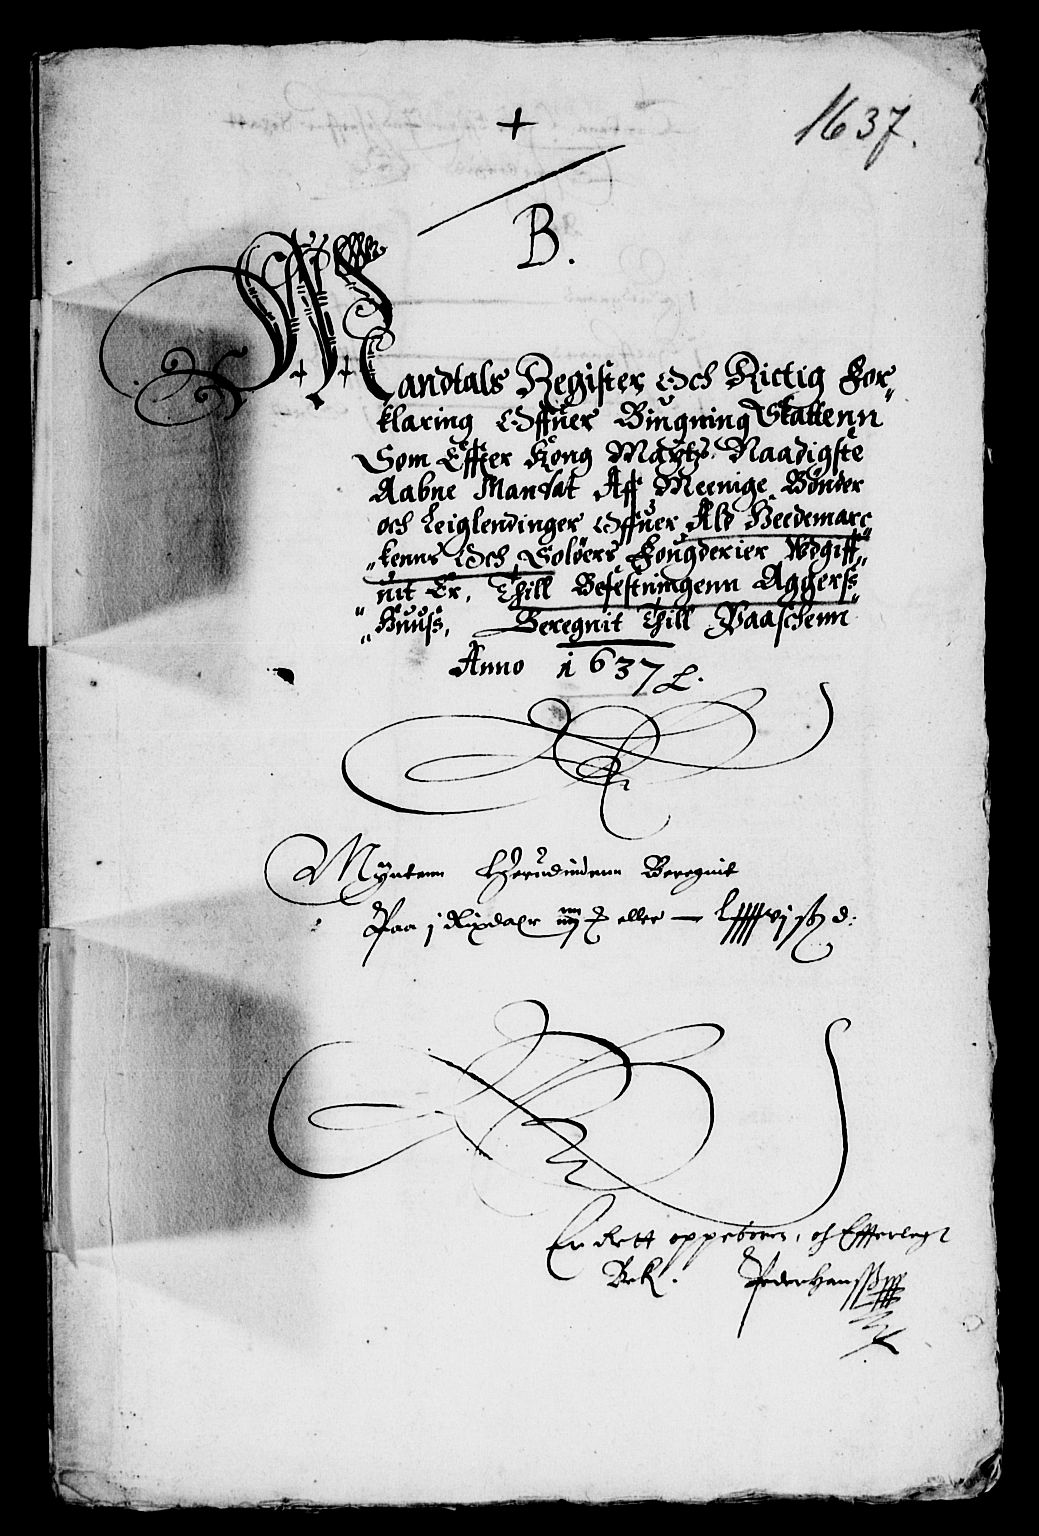 1637.
+
B.
Mandtals Register Och Rictig For„
klaring Offuer Bingning Skattenn
Som Effter Kong Maytz. Naadigste
Aabne Mandat Aff Meenige Bønder
och Leiglendinger Offuer Ald Heedemarc
„kenns Och Soløers Fougderier Wdgiff„
„uit Er, Thill Befestningenn Aggers„
„Huuss, Beregnit Thill Paaschenn
Anno 1637
Mÿntenn Herudindenn Beregnit
Paa j Rixdaler eller
Er rett oppeboren, och Effterlagt
Bek. Peder Hanss